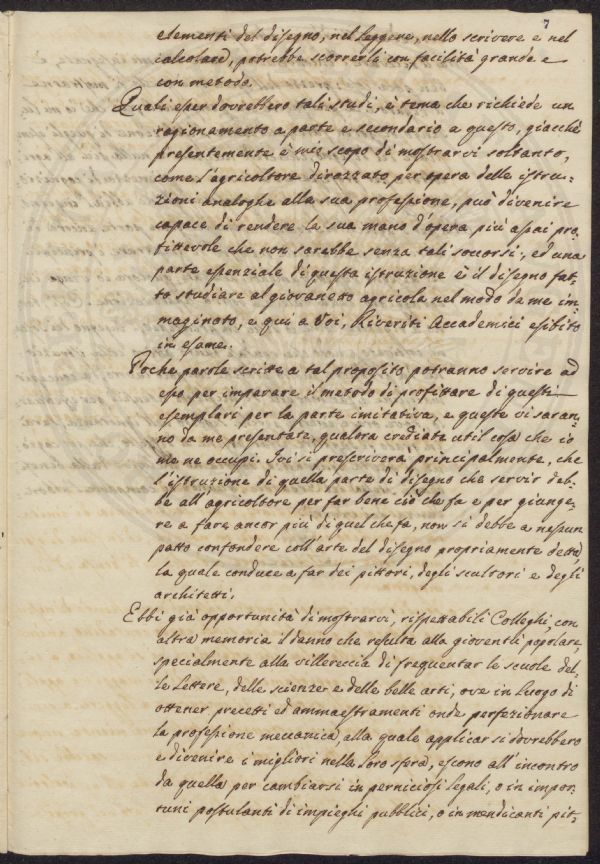 7
elementi del disegno, nel leggere, nello scrivere e nel
calcolare, potrebbe scorrerli con facilità grande e
con metodo.
Quali esser dovrebbero tali studi, è tema che richiede un
ragionamento a parte e secondario a questo, giacchè
presentemente è mio scopo di mostrarvi soltanto,
come l'agricoltore dirozzato per opera delle istru-
zioni analoghe alla sua professione, può divenire
capace di rendere la sua mano d'opera più assai pro-
fittevole che non sarebbe senza tali soccorsi, ed una
parte essenziale di questa istruzione è il disegno fat-
to studiare al giovanetto agricola nel modo da me im-
maginato, e qui a Voi, Riveriti Accademici esibito
in esame.
Poche parole scritte a tal proposito potranno servire ad
esso per imparare il metodo di profittare di questi
esemplari per la parte imitativa, e queste vi saran-
no da me presentate, qualora crediate util cosa che io
me ne occupi. Ivi si prescriverà principalmente, che
l'istruzione di quella parte di disegno che servir deb-
be all'agricoltore per far bene ciò che fa e per giunge-
re a fare ancor più di quel che fa, non si debbe a nessun
patto confondere coll'arte del disegno propriamente detta,
la quale conduce a far dei pittori, degli scultori e degli
architetti.
Ebbi già opportunità di mostrarvi, rispettabili Colleghi, con
altra memoria il danno che resulta alla gioventù popolare,
specialmente alla villereccia di frequentar le scuole del-
le Lettere, delle scienze e delle belle arti, ove in luogo di
ottener precetti ed ammaestramenti onde perfezionare
la professione meccanica, alla quale applicar si dovrebbero
e divenire i migliori nella loro sfera, escono all'incontro
da quella per cambiarsi in perniciosi legali, o in impor-
tuni postulanti di impieghi pubblici, o in mendicanti pit-